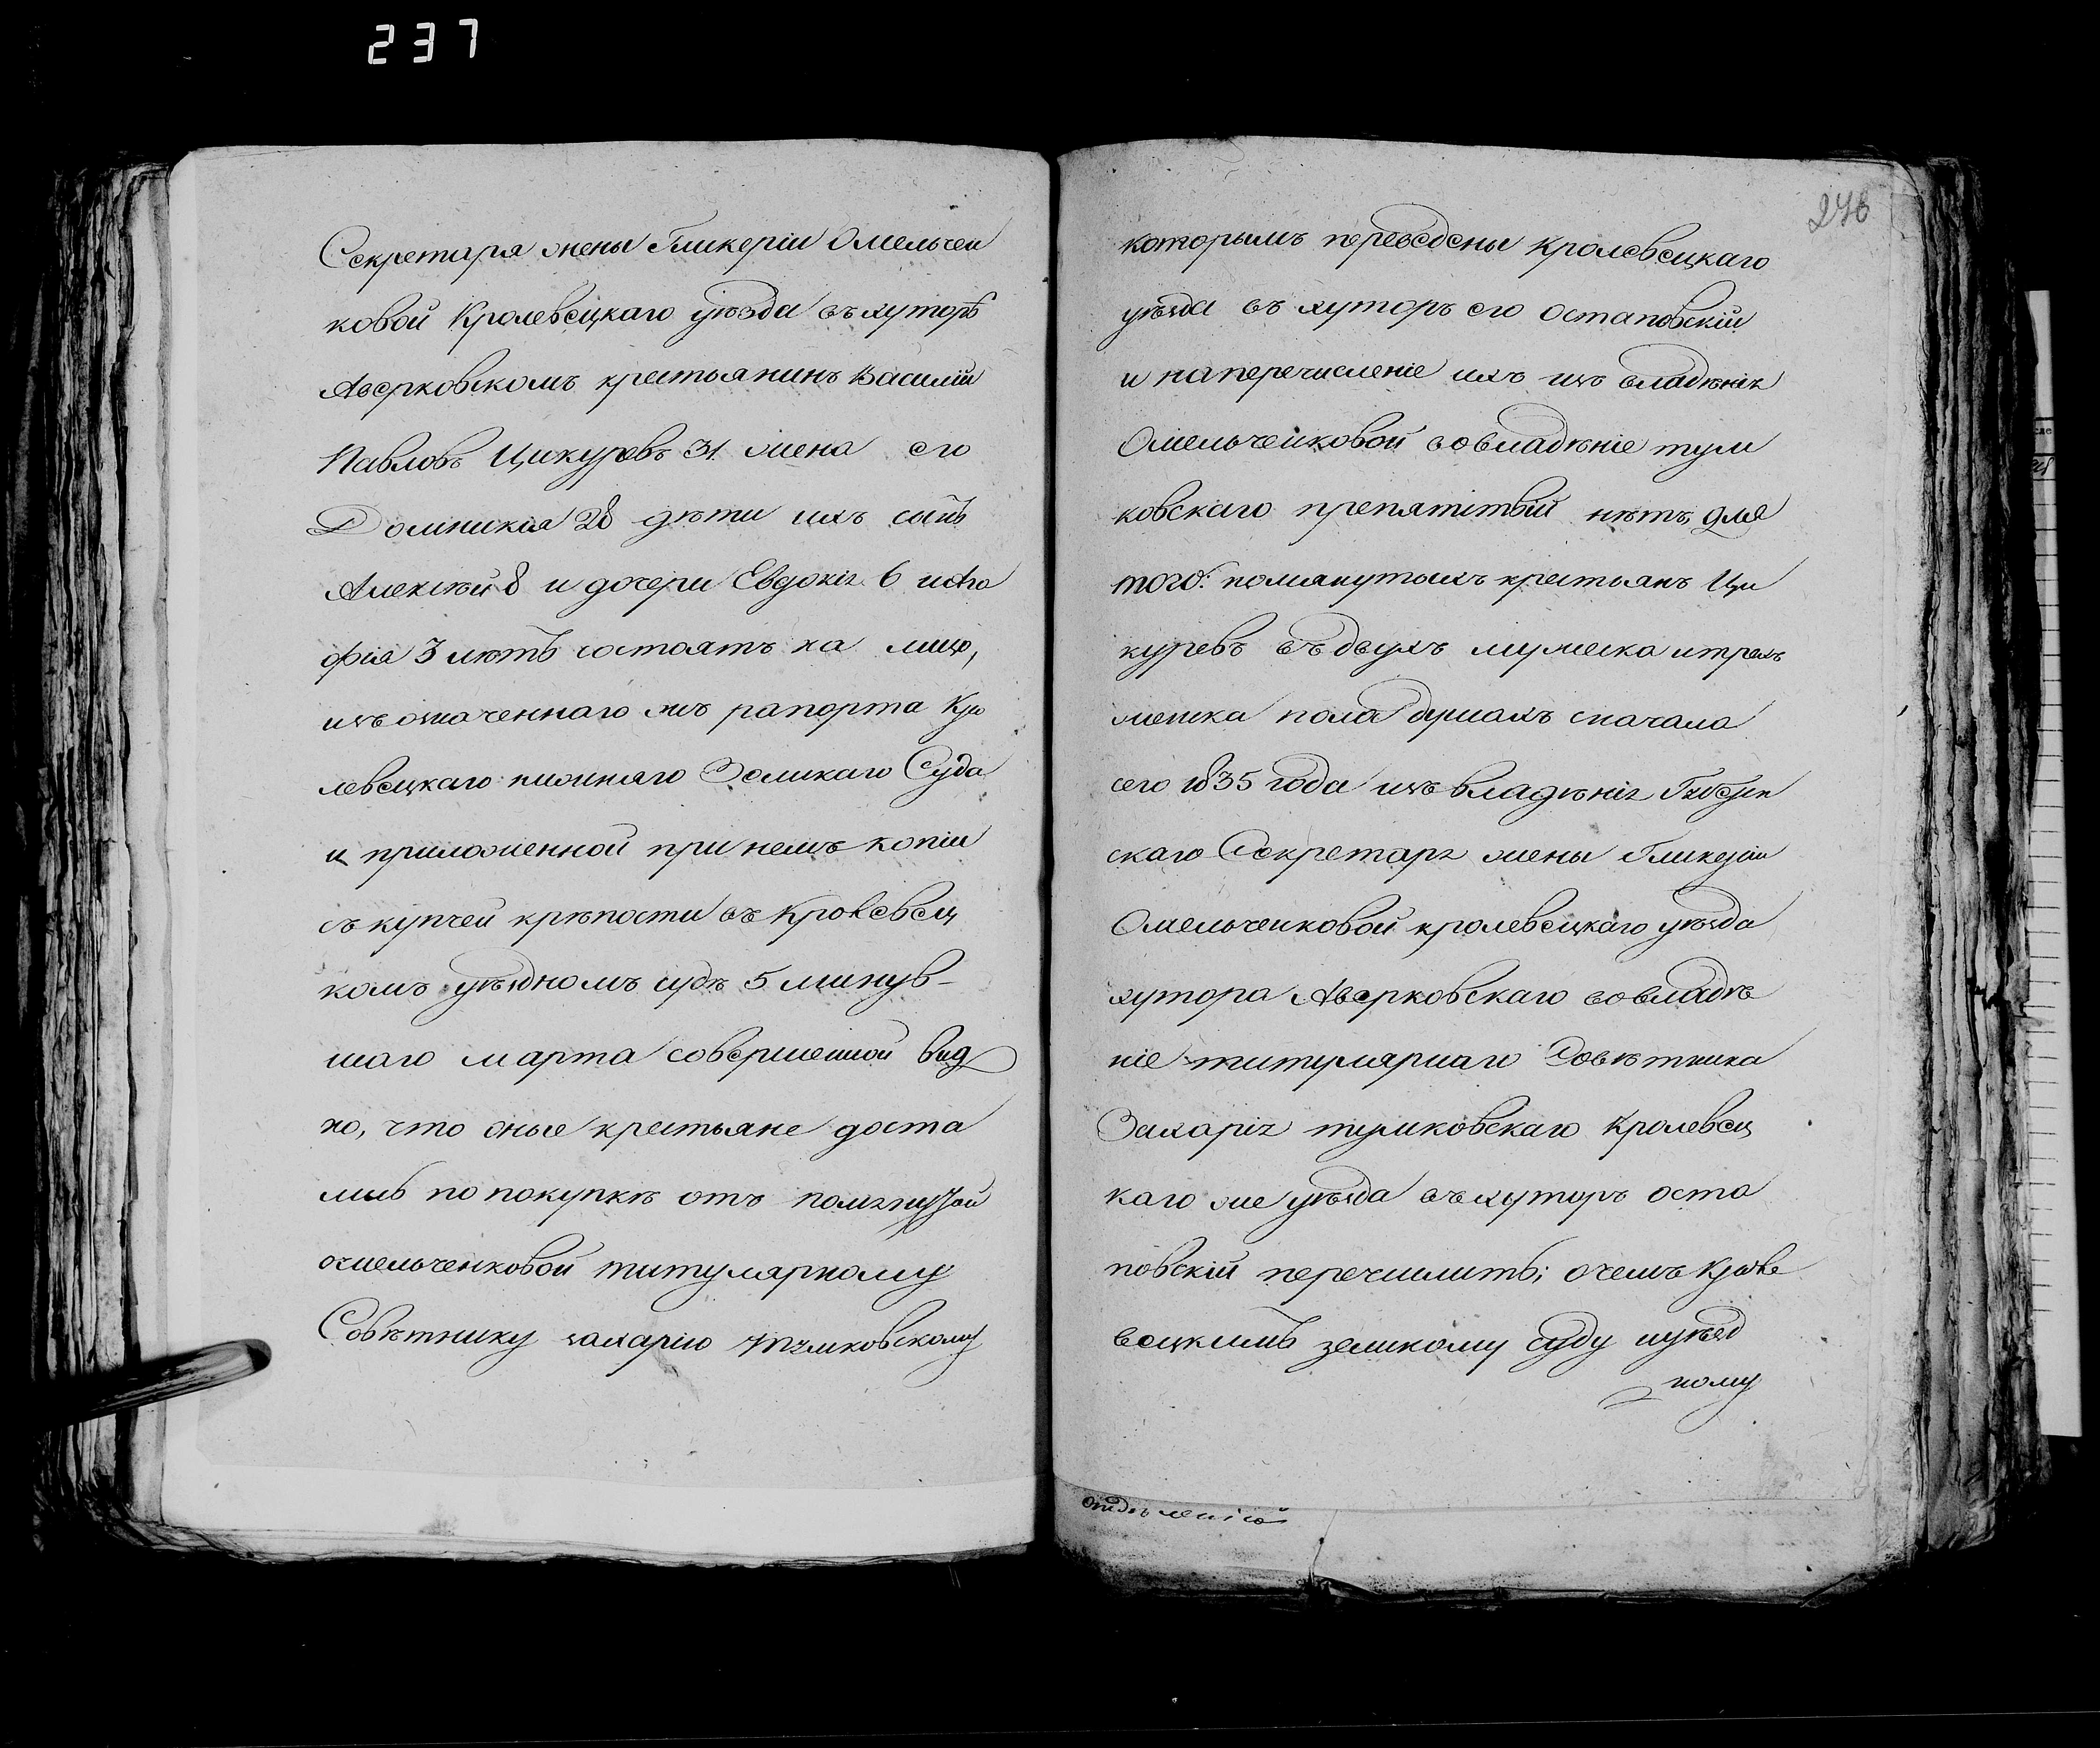 237
Секретаря жены Гликеріи Омельчен
ковой Кролевецкаго уѣзда въ хуторѣ
Аверковскомъ крестьянинъ Василій
Павловъ Цикуревъ 31 жена его
Домникія 28 дѣти ихъ сынъ
Алексѣй 8 и дочери Евдокія 6 и
фія 3 лѣтъ состоятъ на лицо,
изъ означеннаго жъ рапорта Кро
левецкаго нижняго Земскаго Суда
и приложенной при немъ копіи
съ купчей крѣпости въ Кролевец
комъ уѣздномъ судѣ 5 минув-
шаго марта совершенной вид
но, что оные крестьяне доста
лись по покупкѣ отъ помянутой
омельченковой титулярному
Совѣтнику захарію тумковскому
246
которымъ переведены Кролевецкаго
уѣзда въ хуторъ его Остаповскій
и на перечисленіе ихъ изъ владѣнія
Омельченковой во владѣніе тум
ковскаго препятствій нѣтъ, для
того: помянутыхъ крестьянъ Ци
куревъ въ двухъ мужеска и трехъ
женска пола душахъ сначала
сего 1835 года изъ владѣнія Губерн
скаго Секретаря жены Гликеріи
Омельченковой кролевецкаго уѣзда
хутора Аверковскаго во владѣ
ніе титулярнаго Совѣтника
Захарія тумковскаго Кролевец
каго же уѣзда въ хуторъ оста
повскій перечислить; о чемъ Кроле
вецкимъ земскому суду и уѣзд
ному
отдѣленіе